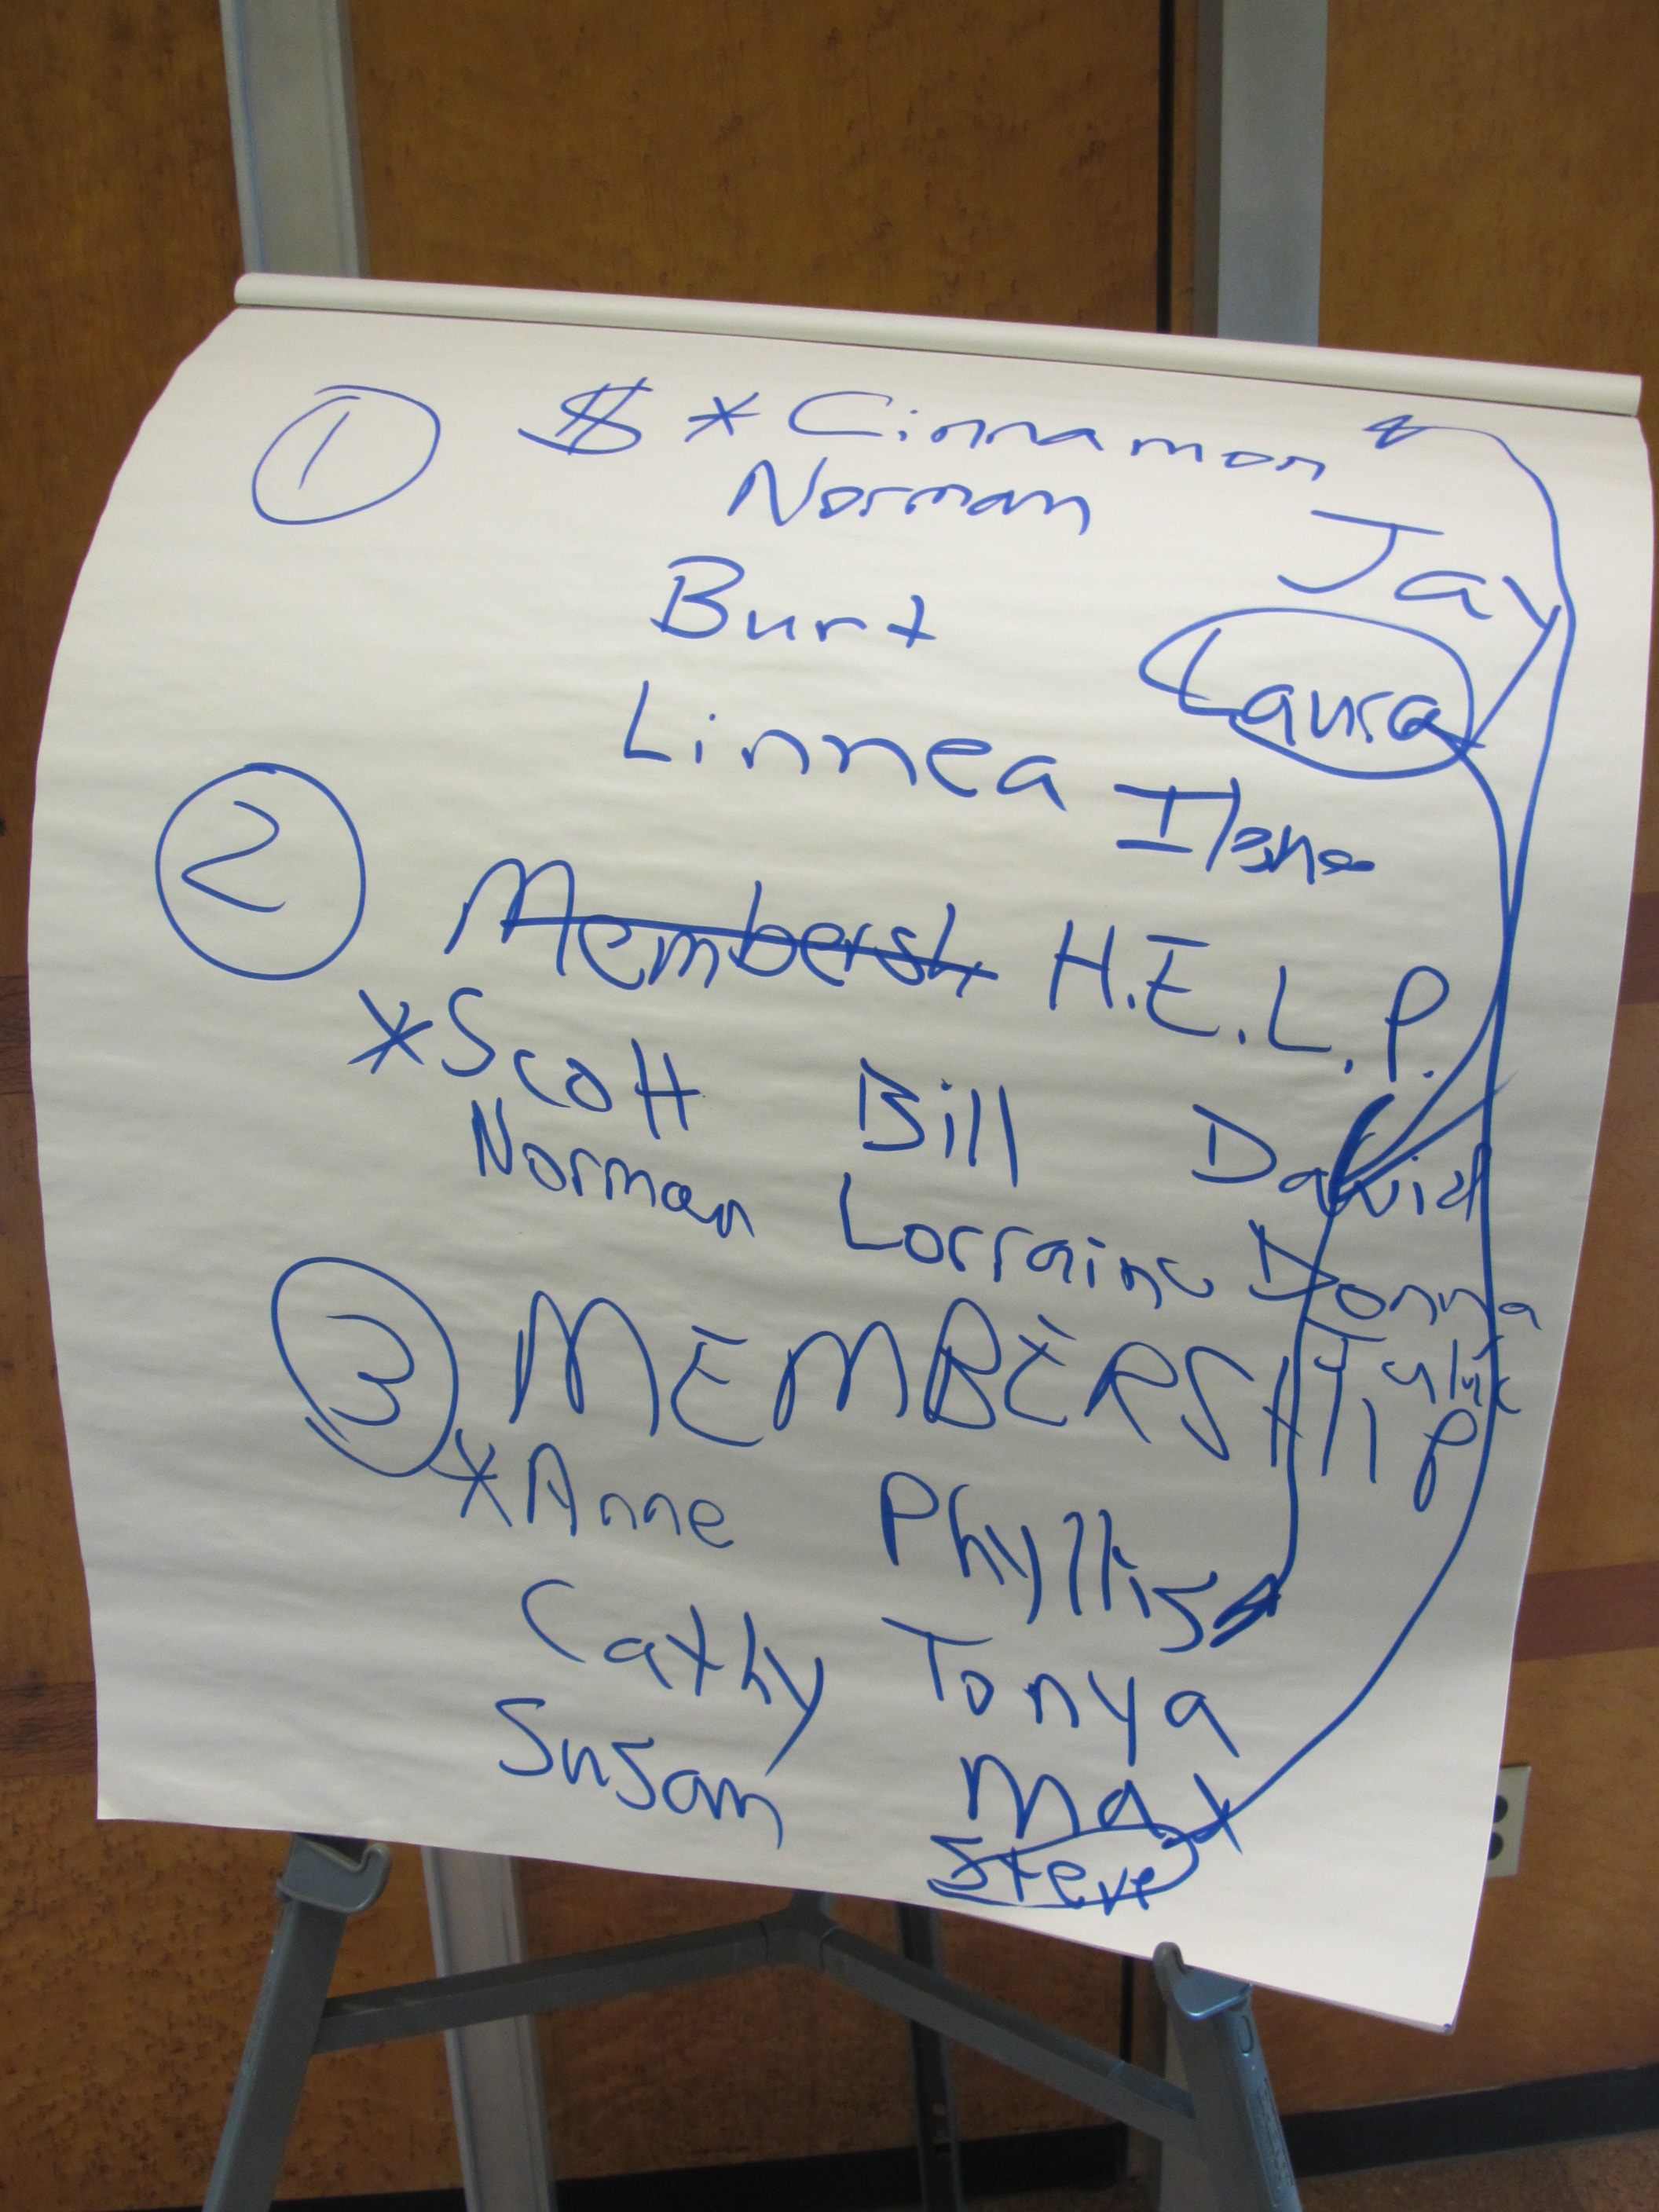 1 $ *Cinnamon
Norman Jay
Burt Laura
Linnea Ilene
2 Membersh H.E.L.P.
*Scott Bill David
Norman Lorraine Donna
Julie
3 MEMBERSHIP
*Anne Phyllis
Cathy Tonya
Susan Max
Steve